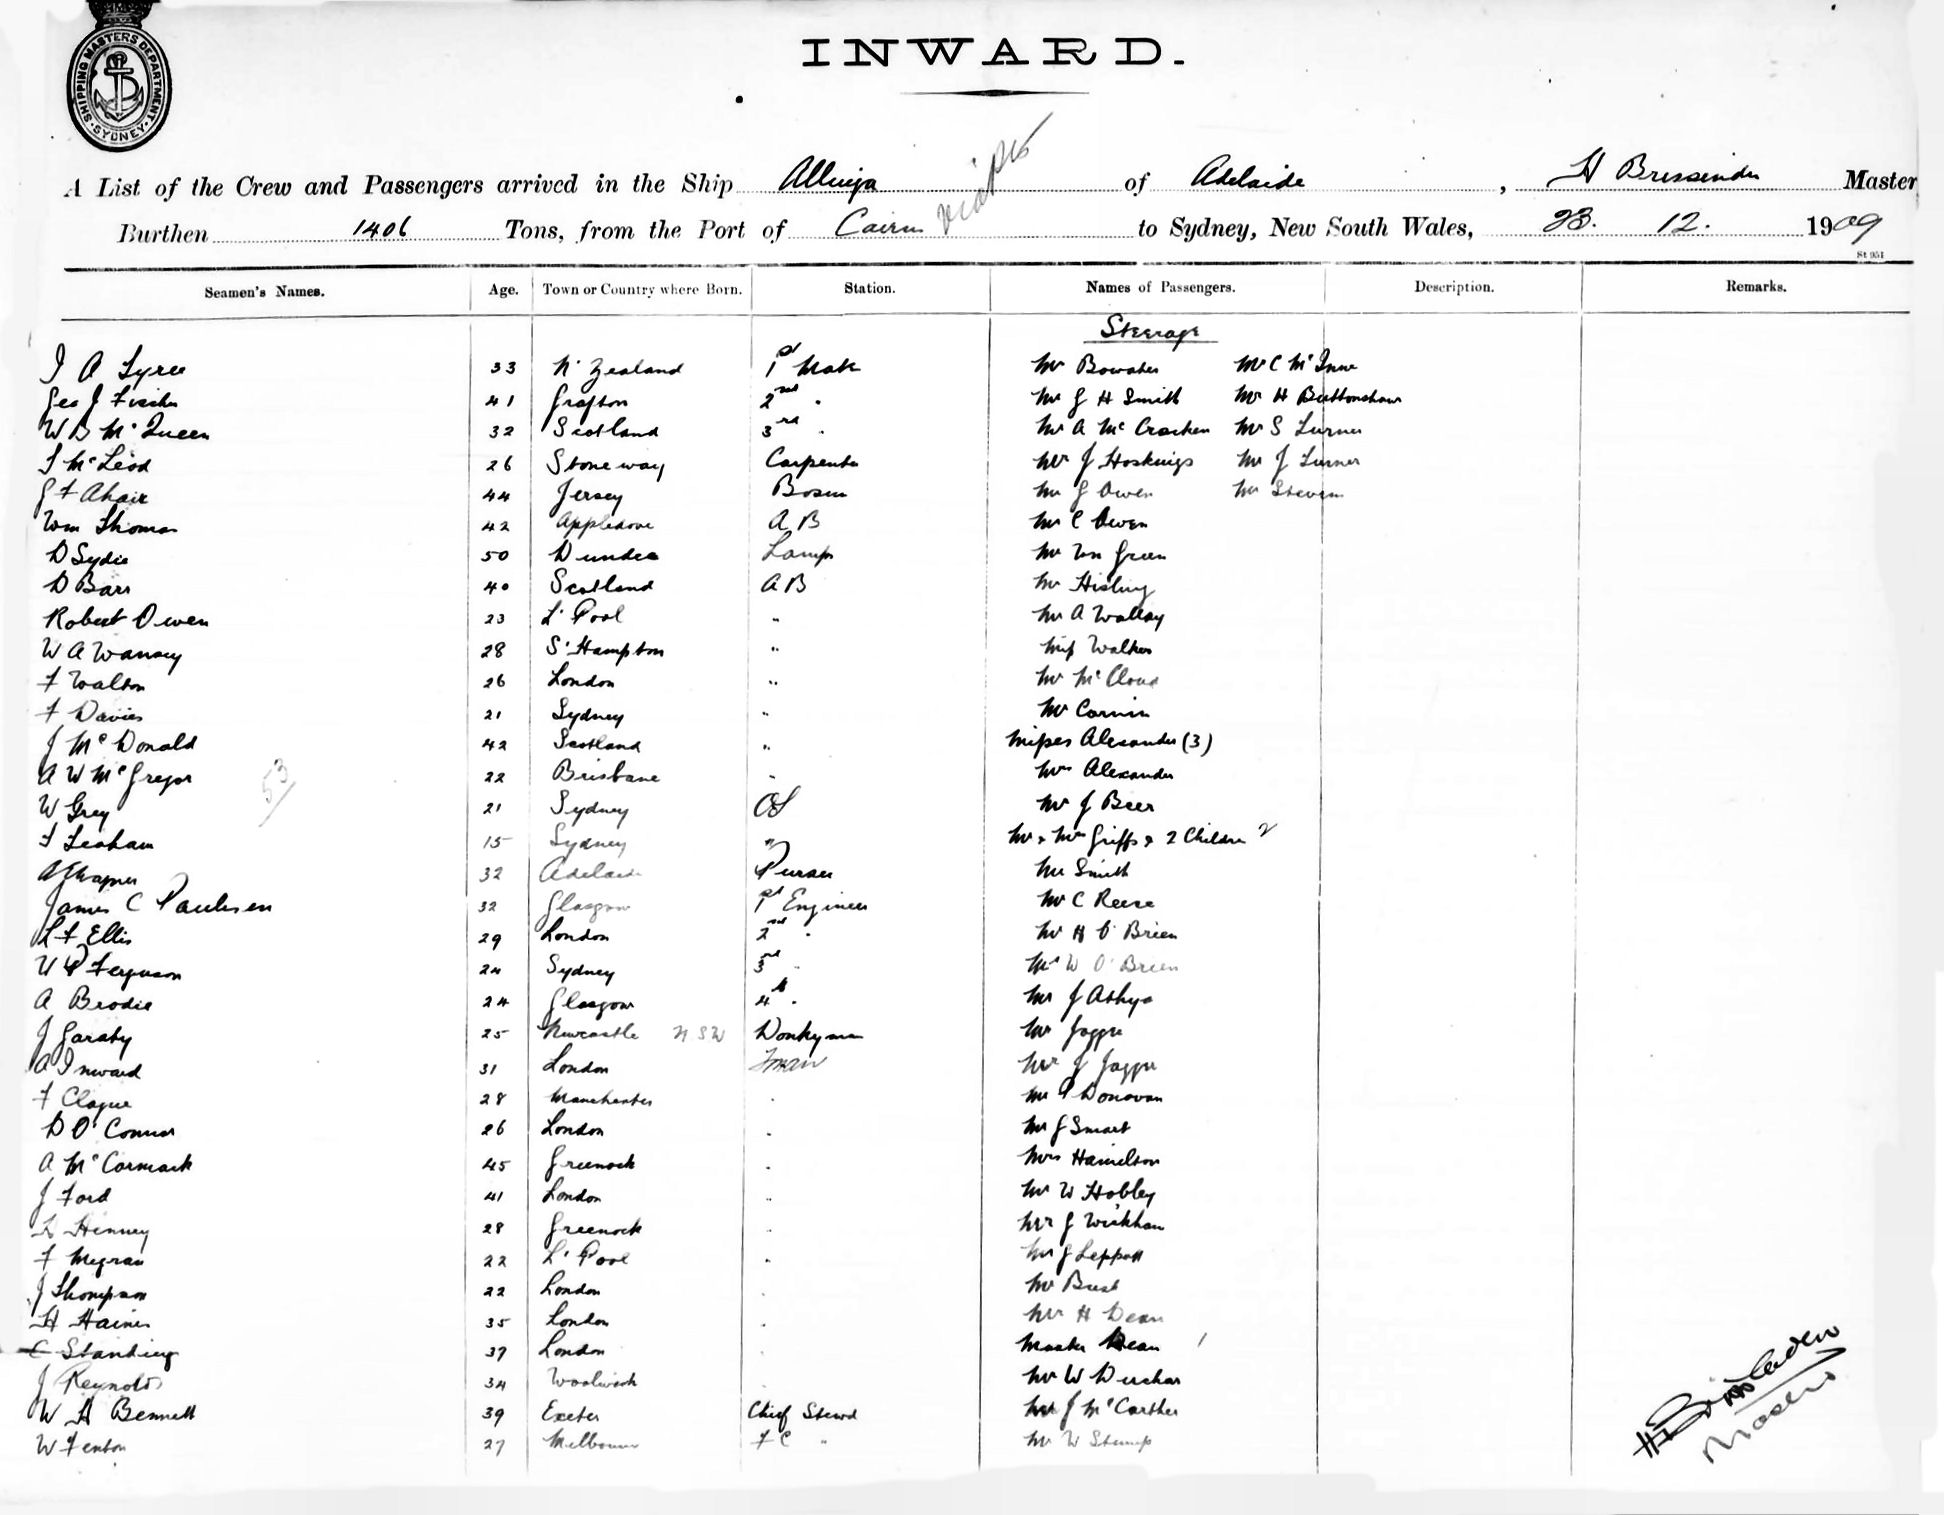 SHIPPING MASTERS DEPARTMENT
SYDNEY
INWARD.
A List of the Crew and Passengers arrived in the Ship Allinga of Adelaide, H Master
Burthen 1406 Tons, from the Port of Cairns to Sydney, New South Wales, 23. 12. 1909
St 951
Seamen's Names. Age. Town or Country where Born. Station. Names of Passengers. Description. Remarks.
Steerage
J A Tyree 33 N' Zealand 1st Mate Mr Bowater Mr C McInne
Geo J Fischer 41 Grafton 2nd " Mr G H Smith Mr H Buttonshaw
W B McQueen 32 Scotland 3rd " Mr A McCracken Mr S Turner
J McLeod 26 Stoneway Carpenter Mr J Hoskings Mr J Turner
G F Ahair 44 Jersey Bosun Mr G Owen Mr Steven
Wm Thomas 42 Appledore A B Mr C Owen
D Sydie 50 Dundee Lamps Mr Wm Green
D Barr 40 Scotland A B Mr Hisling
Robert Owen 23 L' Pool " Mr A Wallay
W A Wansey 28 S' Hampton " Miss Walker
F Walton 26 London " Mr McCloud
F Davies 21 Sydney " Mr Corvin
J McDonald 42 Scotland " Misses Alexander (3)
A W McGregor 53 22 Brisbane " Mrs Alexander
W Grey 21 Sydney OS Mr J Beer
F Leaham 15 Sydney " Mr & Mrs Griffs & 2 Children 2
32 Adelaide Purser Mr Smith
James C Paulsen 32 Glasgow 1st Engineer Mr C Reese
L F Ellis 29 London 2nd " Mr H O'Brien
W P Ferguson 24 Sydney 3rd " Mr W O'Brien
A Brodie 24 Glasgow 4th " Mr J Athya
J Garaty 25 Newcastle N.S.W Donkeyman Mr Jagger
A Inward 31 London Fman Mr J Jagger
F Clague 28 Manchester " Mr P Donovan
D O'Connor 26 London " Mr J Smart
A McCormack 45 Greenock " Mrs Hamilton
J Ford 41 London " Mr W Hobley
Henney 28 Greenock " Mr J Wickham
F Megran 22 L' Pool " Mr J Leppatt
J Thompson 22 London " Mr Bush
H Haines 35 London " Mr H Dean
C Standing 37 London " Master Dean 1
J Reynolds 34 Woolwich " Mr W Durchar
W H Bennett 39 Exeter Chief Stewd Mr J McCarther
W Fenton 27 Melbourne F C " Mr W Stump
Master